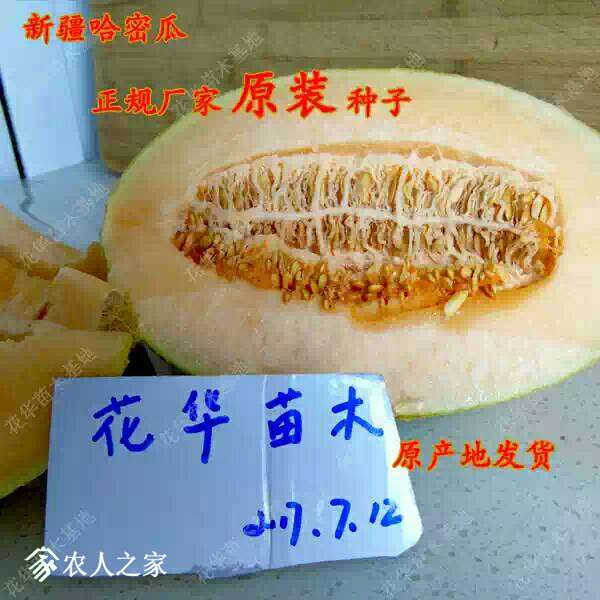 新疆哈密瓜
正规厂家原装种子
花华苗木
2017.7.12
原产地发货
农人之家
花华苗木基地